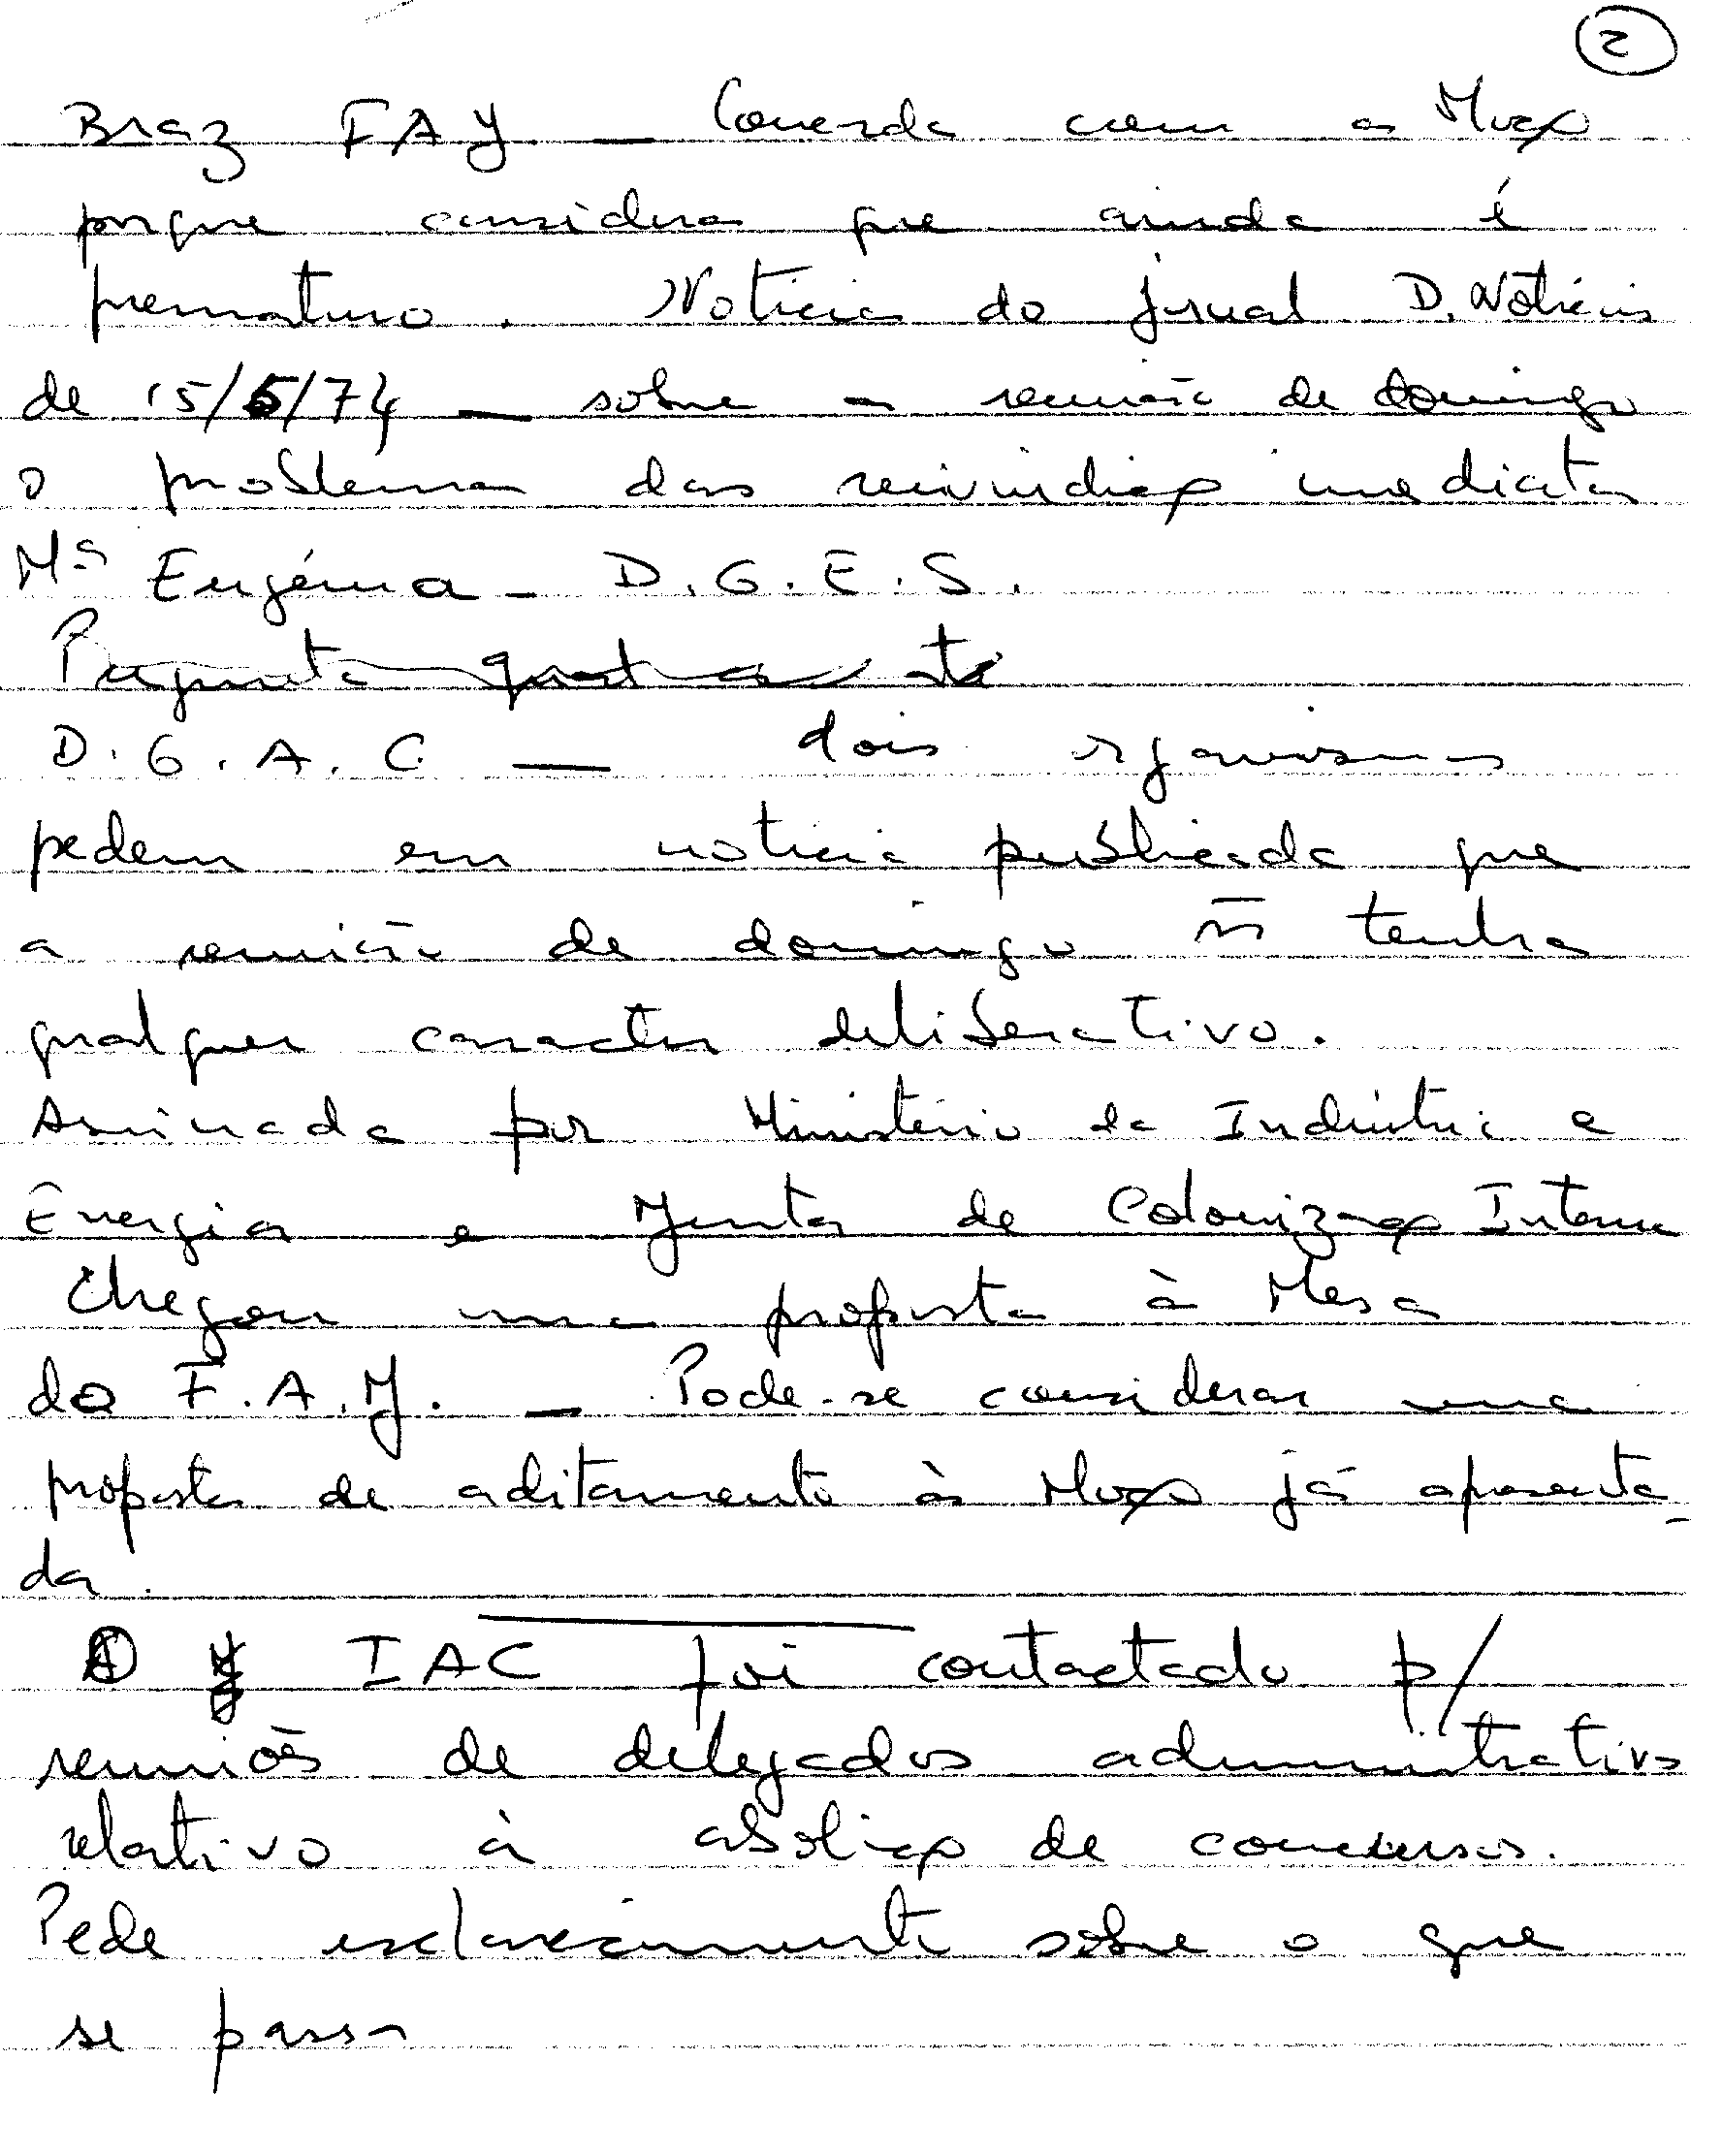 2
Braz FAJ — Concorda com a Moção
porque considera que ainda é
prematuro. Noticia do jornal D. Noticias
de 15/5/74 — sobre a reunião de domingo
o problema das reivindicaç imediatas
Mª Eugénia - D.G.E.S.
Pergunta
D.G.A.C — dois organismos
pedem em noticia publicada que
a reunião de domingo ñ tenha
qualquer caracter deliberativo.
Assinada por Ministério da Indústria e
Energia e Junta de Colonização Interna
Chegou uma proposta à Mesa
do F.A.J. — Pode-se considerar uma
proposta de aditamento à Moção já apresenta-
da.
O IAC foi contactado p/
reuniões de delegados administrativos
relativo à abolição de concursos.
Pede esclarecimento sobre o que
se passa